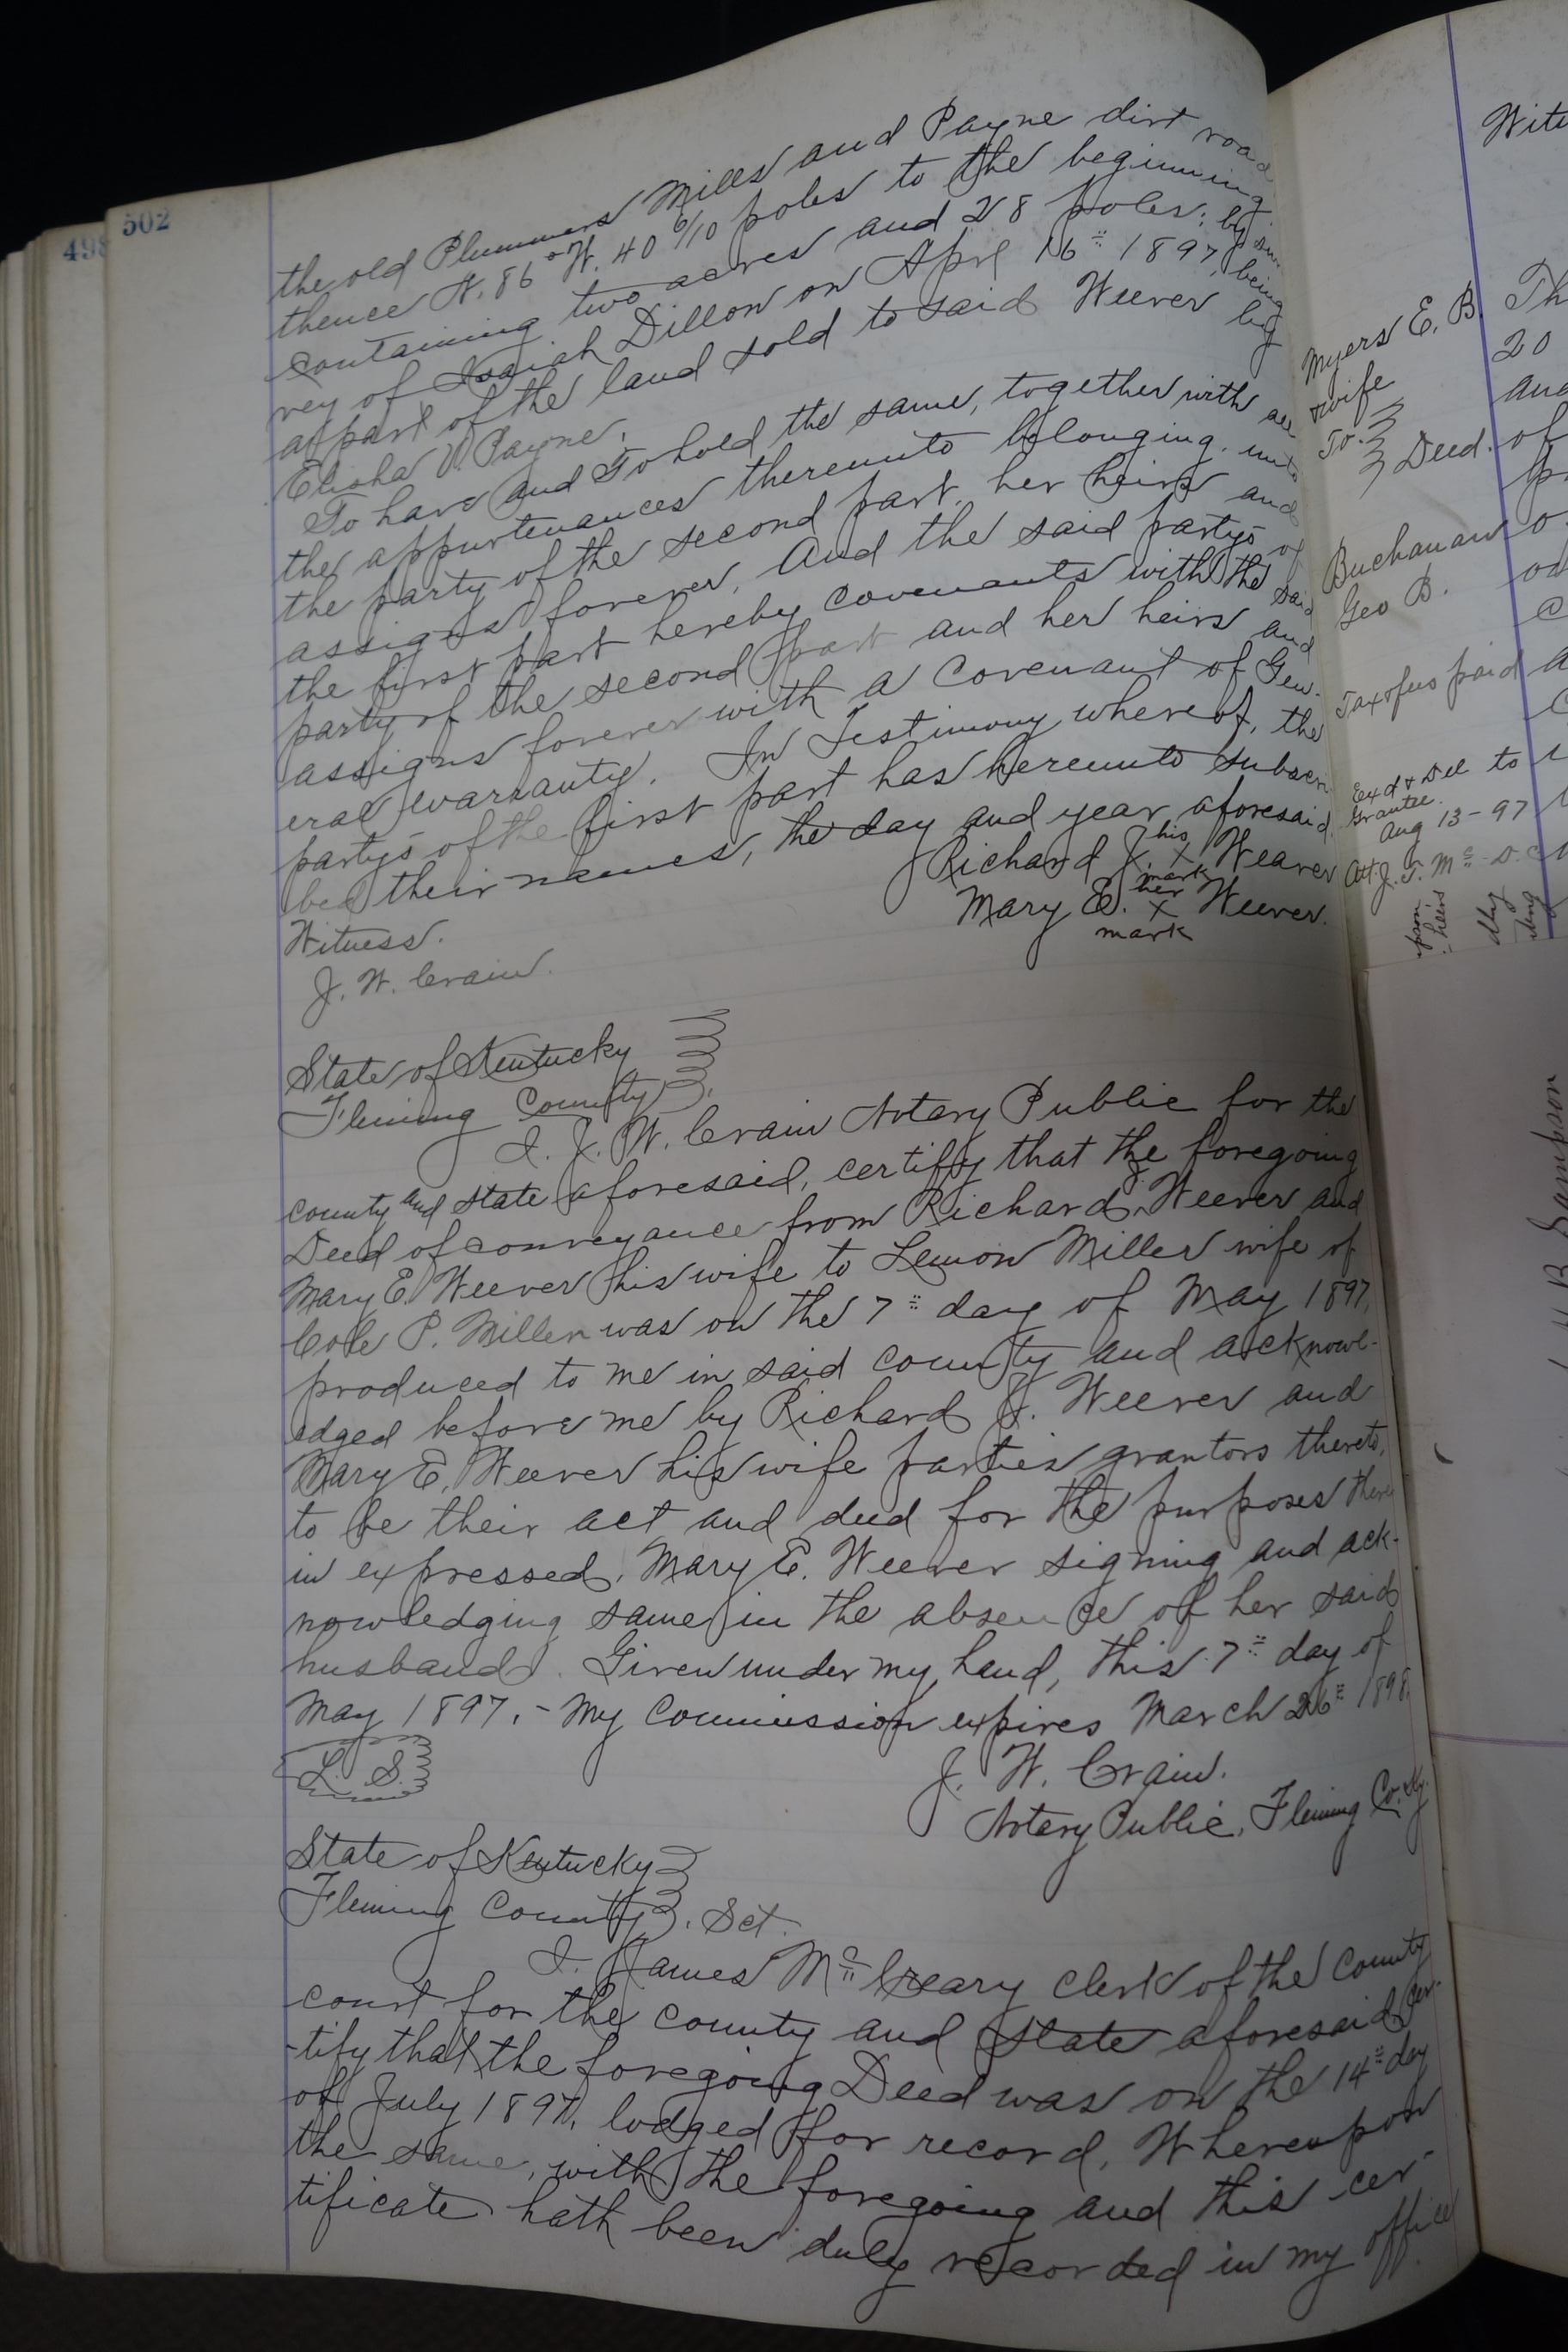 498
502
the old Plummers Mills and Payne dirt road
thence N. 86° W. 40 6/10 poles to the beginning
containing two acres and 28 poles; by sur
vey of Isaiah Dillon on Aprl 16" 1897, being
a part of the land sold to said Weever by
Elisha V. Payne.
To have and To hold the same, together with all
the appurtenances thereunto belonging, unto
the party of the second part, her heirs and
assigns forever. And the said partys of
the first part hereby covenants with the said
party of the second part and her heirs and
assigns forever with a Covenant of Gen-
eral warranty. In Testimony whereof, the
partys of the first part has hereunto subscri
bed their names, the day and year aforesaid.
Richard J. his X mark Weaver
Mary E. her X mark Weever.
Witness.
J. W. Crain.
State of Kentucky
Fleming County
I. J. W. Crain Notary Public for the
county and state aforesaid, certify that the foregoing
Deed of conveyance from Richard J. Weever and
Mary E. Weever his wife to Lemon Miller wife of
Cole P. Miller was on the 7" day of May 1897,
produced to me in said county and acknowl-
edged before me by Richard J. Weever and
Mary E. Weever his wife parties grantors thereto,
to be their act and deed for the purposes there
in expressed. Mary E. Weever signing and ack-
nowledging same in the absence of her said
husband. Given under my hand, this 7" day of
May 1897. - My Commission expires March 26" 1898.
L. S.
J. W. Crain.
Notary Public, Fleming Co. Ky.
State of Kentucky
Fleming County. Sct.
I. James Mc Creary clerk of the County
court for the county and State aforesaid cer-
-tify that the foregoing Deed was on the 14" day
of July 1897, lodged for record. Whereupon
the same, with the foregoing and this cer-
tificate hath been duly recorded in my office
Myers E. B.
& wife
To. Deed.
Buchanan
Geo B.
Tax & fees paid
Exd & Del to
Grantee.
Aug 13-97
Att. J. T. Mc D.C.
Th
20
and
of